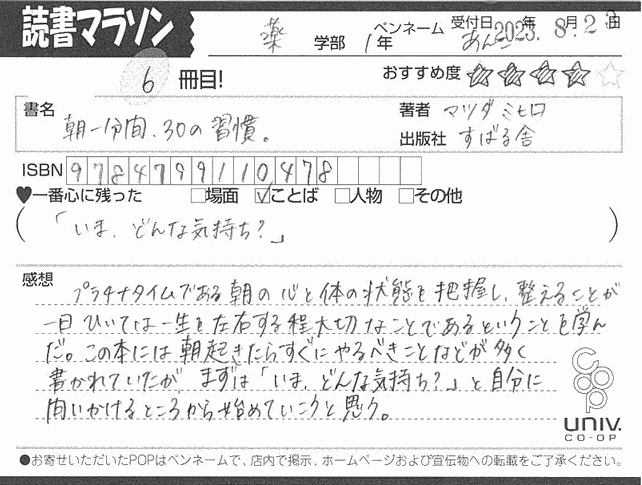 読書マラソン
薬 学部 1年 ペンネーム あんこ 受付日 2023年 8月 23日
6 冊目! おすすめ度 ★★★★☆
書名 朝一分間、30の習慣。
著者 マツダミヒロ
出版社 すばる舎
ISBN 9784799110478
♥一番心に残った □場面 ☑ことば □人物 □その他
(「いま、どんな気持ち?」)
感想
プラチナタイムである朝の心と体の状態を把握し、整えることが
一日ひいては一生を左右する程大切なことであるということを学ん
だ。この本には朝起きたらすぐにやるべきことなどが多く
書かれていたが まずは「いま、どんな気持ち?」と自分に
問いかけるところから始めていこうと思う。
coop
UNIV.
CO-OP
●お寄せいただいたPOPはペンネームで、店内で掲示、ホームページおよび宣伝物への転載をご了承ください。